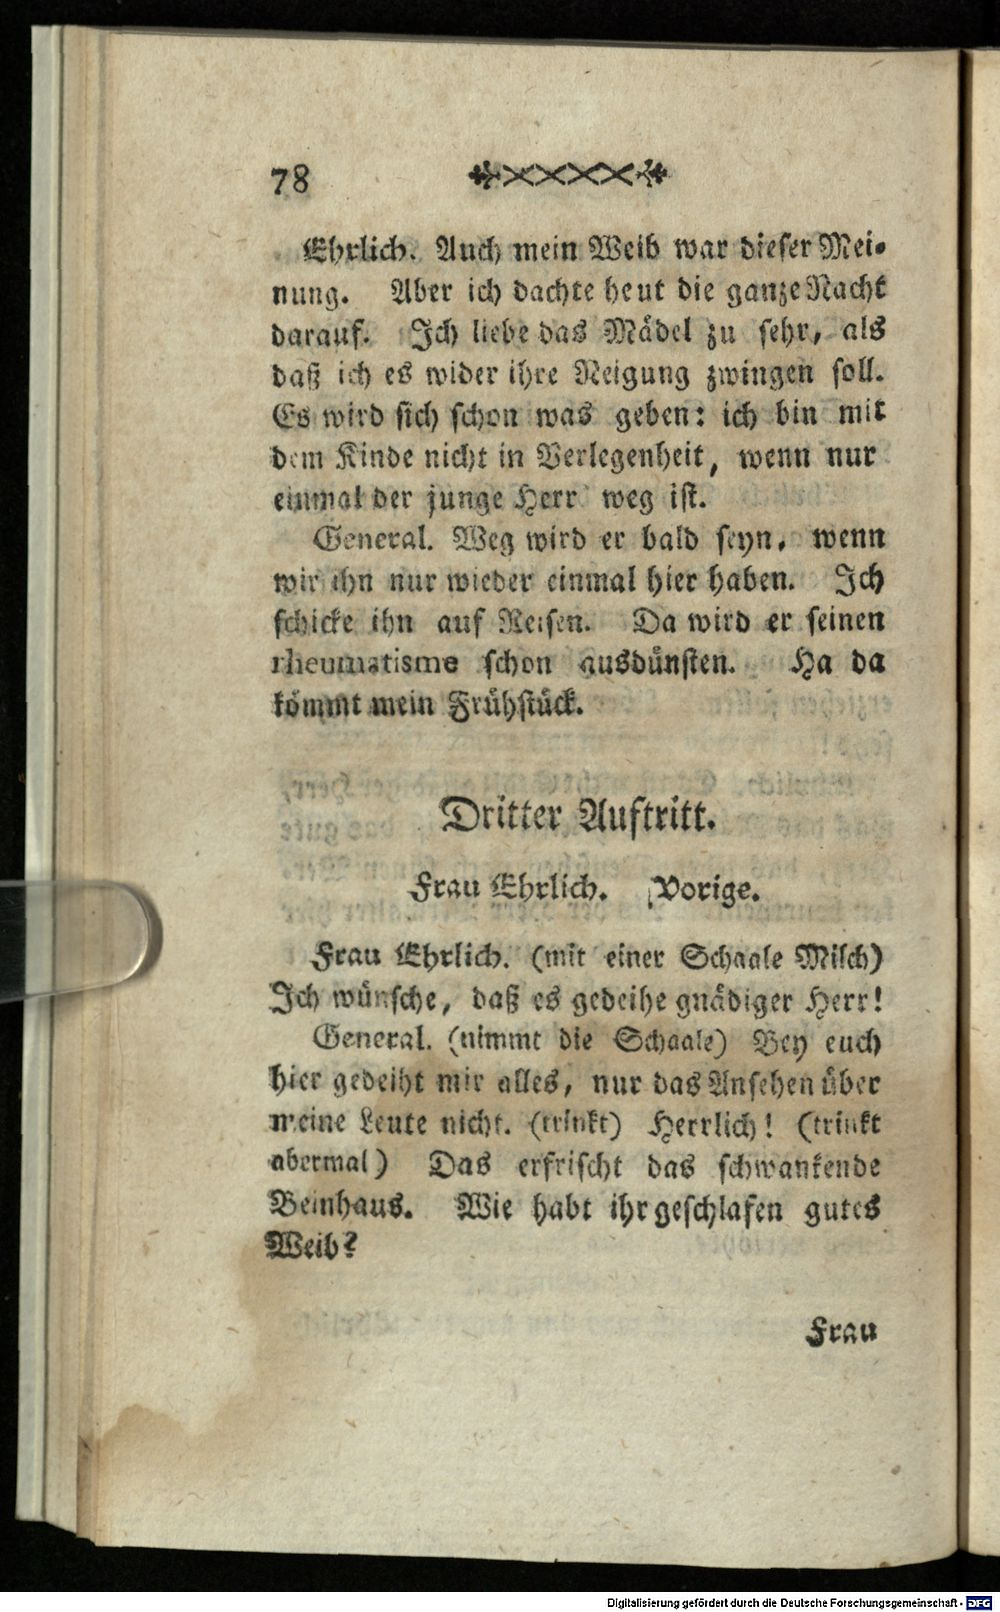 78
Ehrlich. Auch mein Weib war dieser Mei-
nung. Aber ich dachte heut die ganze Nacht
darauf. Ich liebe das Mädel zu sehr, als
daß ich es wider ihre Neigung zwingen soll.
Es wird sich schon was geben: ich bin mit
dem Kinde nicht in Verlegenheit, wenn nur
einmal der junge Herr weg ist.
General. Weg wird er bald seyn, wenn
wir ihn nur wieder einmal hier haben. Ich
schicke ihn auf Reisen. Da wird er seinen
rheumatisme schon ausdünsten. Ha da
kömmt mein Frühstück.
Dritter Auftritt.
Frau Ehrlich. Vorige.
Frau Ehrlich. (mit einer Schaale Milch)
Ich wünsche, daß es gedeihe gnädiger Herr!
General. (nimmt die Schaale) Bey euch
hier gedeiht mir alles, nur das Ansehen über
meine Leute nicht. (trinkt) Herrlich! (trinkt
abermal) Das erfrischt das schwankende
Beinhaus. Wie habt ihr geschlafen gutes
Weib?
Frau
Digitalisierung gefördert durch die Deutsche Forschungsgemeinschaft - DFG